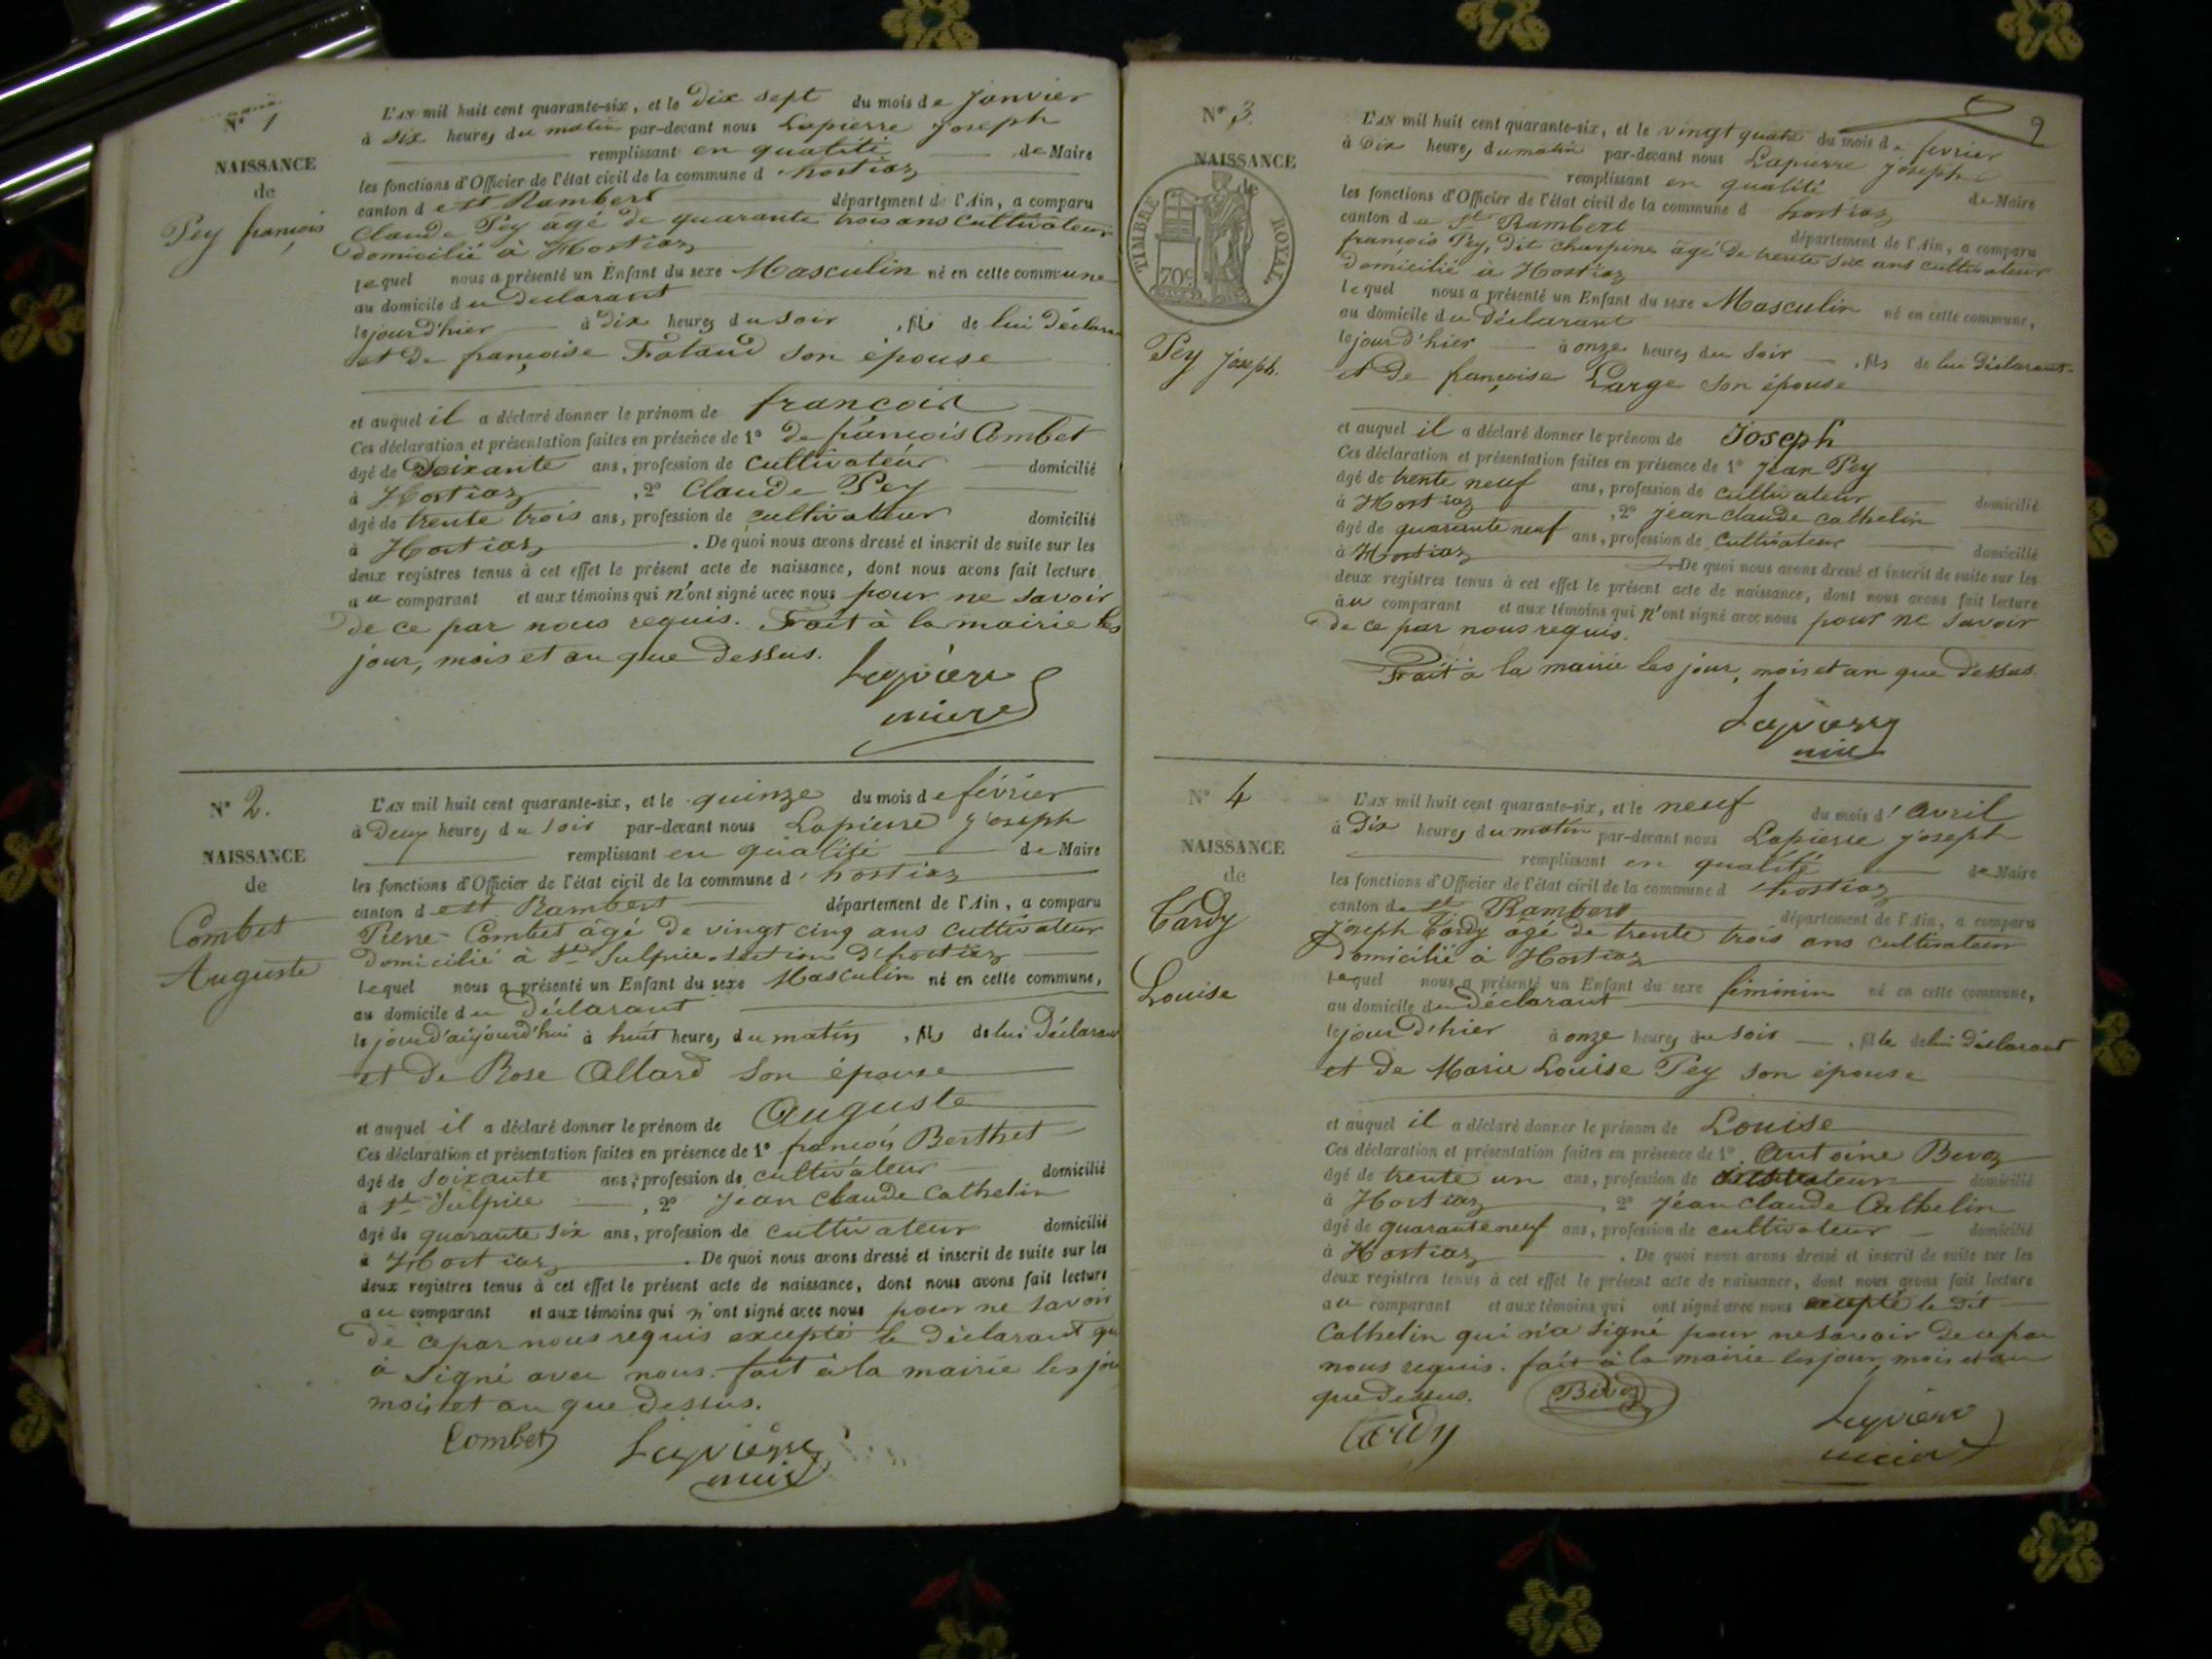 N° 1
NAISSANCE
de
Pey françois
L'AN mil huit cent quarante-six, et le dix sept du mois de Janvier
à six heures du matin par-devant nous Lapierre Joseph
remplissant en qualité de Maire
les fonctions d'Officier de l'état civil de la commune d'hostiaz
canton de St Rambert département de l'Ain, a comparu
Claude Pey âgé de quarante trois ans cultivateur
domicilié à Hostiaz
lequel nous a présenté un Enfant du sexe Masculin né en cette commune
au domicile du declarant
le jour d'hier à dix heures du soir, fils de lui déclara
et de françoise son épouse
et auquel il a déclaré donner le prénom de françois
Ces déclaration et présentation faites en présence de 1° de françois Combet
âgé de soixante ans, profession de cultivateur domicilié
à Hostiaz, 2° Claude Pey
âgé de trente trois ans, profession de cultivateur domicilié
à Hostiaz. De quoi nous avons dressé et inscrit de suite sur les
deux registres tenus à cet effet le présent acte de naissance, dont nous avons fait lecture
au comparant et aux témoins qui n'ont signé avec nous pour ne savoir
de ce par nous requis. Fait à la mairie les
jour, mois et an que dessus.
Lapierre
mire
N° 2.
NAISSANCE
de
Combet
Auguste
L'AN mil huit cent quarante-six, et le quinze du mois de février
à deux heures du soir par-devant nous Lapierre Joseph
remplissant en qualité de Maire
les fonctions d'Officier de l'état civil de la commune d'hostiaz
canton de St Rambert département de l'Ain, a comparu
Pierre Combet âgé de vingt cinq ans cultivateur
domicilié à St Sulpice section d'hostiaz
lequel nous a présenté un Enfant du sexe Masculin né en cette commune,
au domicile du déclarant
le jour d'aujourd'hui à huit heures du matin, fils de lui déclarant
et de Rose Allard son épouse
et auquel il a déclaré donner le prénom de Auguste
Ces déclaration et présentation faites en présence de 1° françois Berthet
âgé de soixante ans, profession de cultivateur domicilié
à St Sulpice, 2° Jean Claude Cathelin
âgé de quarante six ans, profession de cultivateur domicilié
à Hostiaz. De quoi nous avons dressé et inscrit de suite sur les
deux registres tenus à cet effet le présent acte de naissance, dont nous avons fait lecture
au comparant et aux témoins qui n'ont signé avec nous pour ne savoir
de ce par nous requis excepté le déclarant qui
à signé avec nous. fait à la mairie les jou
mois et an que dessus.
Combet Lapierre
mire
2
N° 3.
NAISSANCE
de
TIMBRE ROYAL.
70c
Pey Joseph.
L'AN mil huit cent quarante-six, et le vingt quatre du mois de fevrier
à dix heures du matin par-devant nous Lapierre Joseph
remplissant en qualité de Maire
les fonctions d'Officier de l'état civil de la commune d'hostiaz
canton de St Rambert département de l'Ain, a comparu
françois Pey, dit charpine âgé de trente six ans cultivateur
domicilié à Hostiaz
lequel nous a présenté un Enfant du sexe Masculin né en cette commune,
au domicile du déclarant
le jour d'hier à onze heures du soir, fils de lui déclarant
et de françoise Large son épouse
et auquel il a déclaré donner le prénom de Joseph
Ces déclaration et présentation faites en présence de 1° Jean Pey
âgé de trente neuf ans, profession de cultivateur domicilié
à Hostiaz, 2° Jean claude cathelin
âgé de quarante neuf ans, profession de cultivateur domicilié
à Hostiaz De quoi nous avons dressé et inscrit de suite sur les
deux registres tenus à cet effet le présent acte de naissance, dont nous avons fait lecture
au comparant et aux témoins qui n'ont signé avec nous pour ne savoir
de ce par nous requis.
Fait à la mairie les jour, mois et an que dessus.
Lapierre
mire
N° 4
NAISSANCE
de
Tardy
Louise
L'AN mil huit cent quarante-six, et le neuf du mois d'avril
à dix heures du matin par-devant nous Lapierre Joseph
remplissant en qualité de Maire
les fonctions d'Officier de l'état civil de la commune d'hostiaz
canton de St Rambert département de l'Ain, a comparu
Joseph Tardy âgé de trente trois ans cultivateur
domicilié à Hostiaz
lequel nous a présenté un Enfant du sexe féminin né en cette commune,
au domicile du déclarant
le jour d'hier à onze heures du soir, fille de lui déclarant
et de Marie Louise Pey son épouse
et auquel il a déclaré donner le prénom de Louise
Ces déclaration et présentation faites en présence de 1° Antoine Bevoz
âgé de trente un ans, profession de cultivateur domicilié
à Hostiaz, 2° Jean claude Cathelin
âgé de quarante neuf ans, profession de cultivateur domicilié
à Hostiaz. De quoi nous avons dressé et inscrit de suite sur les
deux registres tenus à cet effet le présent acte de naissance, dont nous avons fait lecture
au comparant et aux témoins qui ont signé avec nous excepté le dit
Cathelin qui n'a signé pour ne savoir de ce par
nous requis. fait à la mairie les jour, mois et an
que dessus. Bevoz
Tardy Lapierre